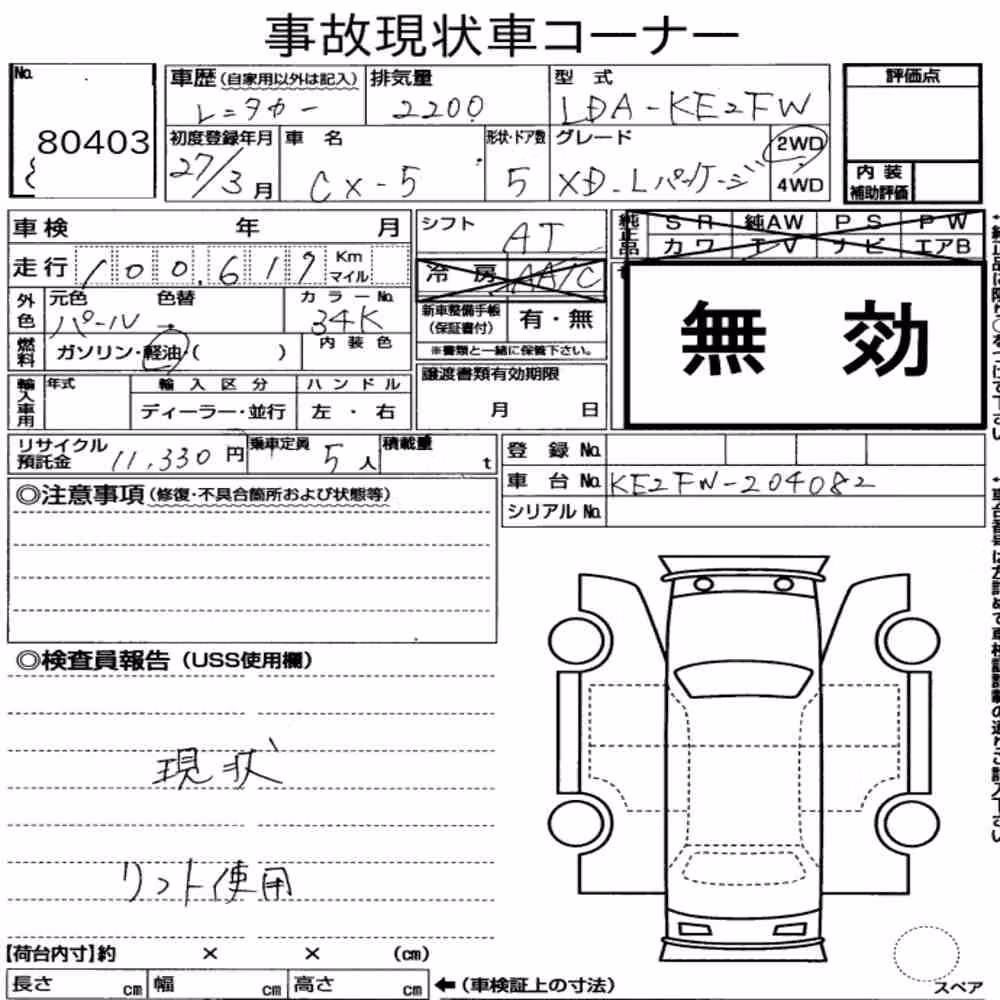 事故現状車コーナー
No. 80403
車歴(自家用以外は記入) 排気量 型式 評価点
レンタカー 2200 LDA-KE2FW
初度登録年月 車名 形状・ドア数 グレード 2WD
27/3月 CX-5 5 XD-Lパッケージ 4WD
内装
補助評価
車検 年 月
シフト AT
純正品 SR 純AW PS PW
カワ TV ナビ エアB
走行 100,619 Km マイル
冷房 AA/C
無効
外色 元色 色替 カラーNo.
パール 34K
新車整備手帳(保証書付) 有・無
燃料 ガソリン・軽油・( ) 内装色
※書類と一緒に保管下さい。
輸入車用 年式 輸入区分 ハンドル
ディーラー・並行 左・右
譲渡書類有効期限
月 日
リサイクル預託金 11,330円 乗車定員 5人 積載量 t
登録No.
車台No. KE2FW-204082
シリアルNo.
◎注意事項(修復・不具合箇所および状態等)
◎検査員報告(USS使用欄)
現状
リフト使用
【荷台内寸】約 × × (cm)
長さ cm 幅 cm 高さ cm ←(車検証上の寸法)
スペア